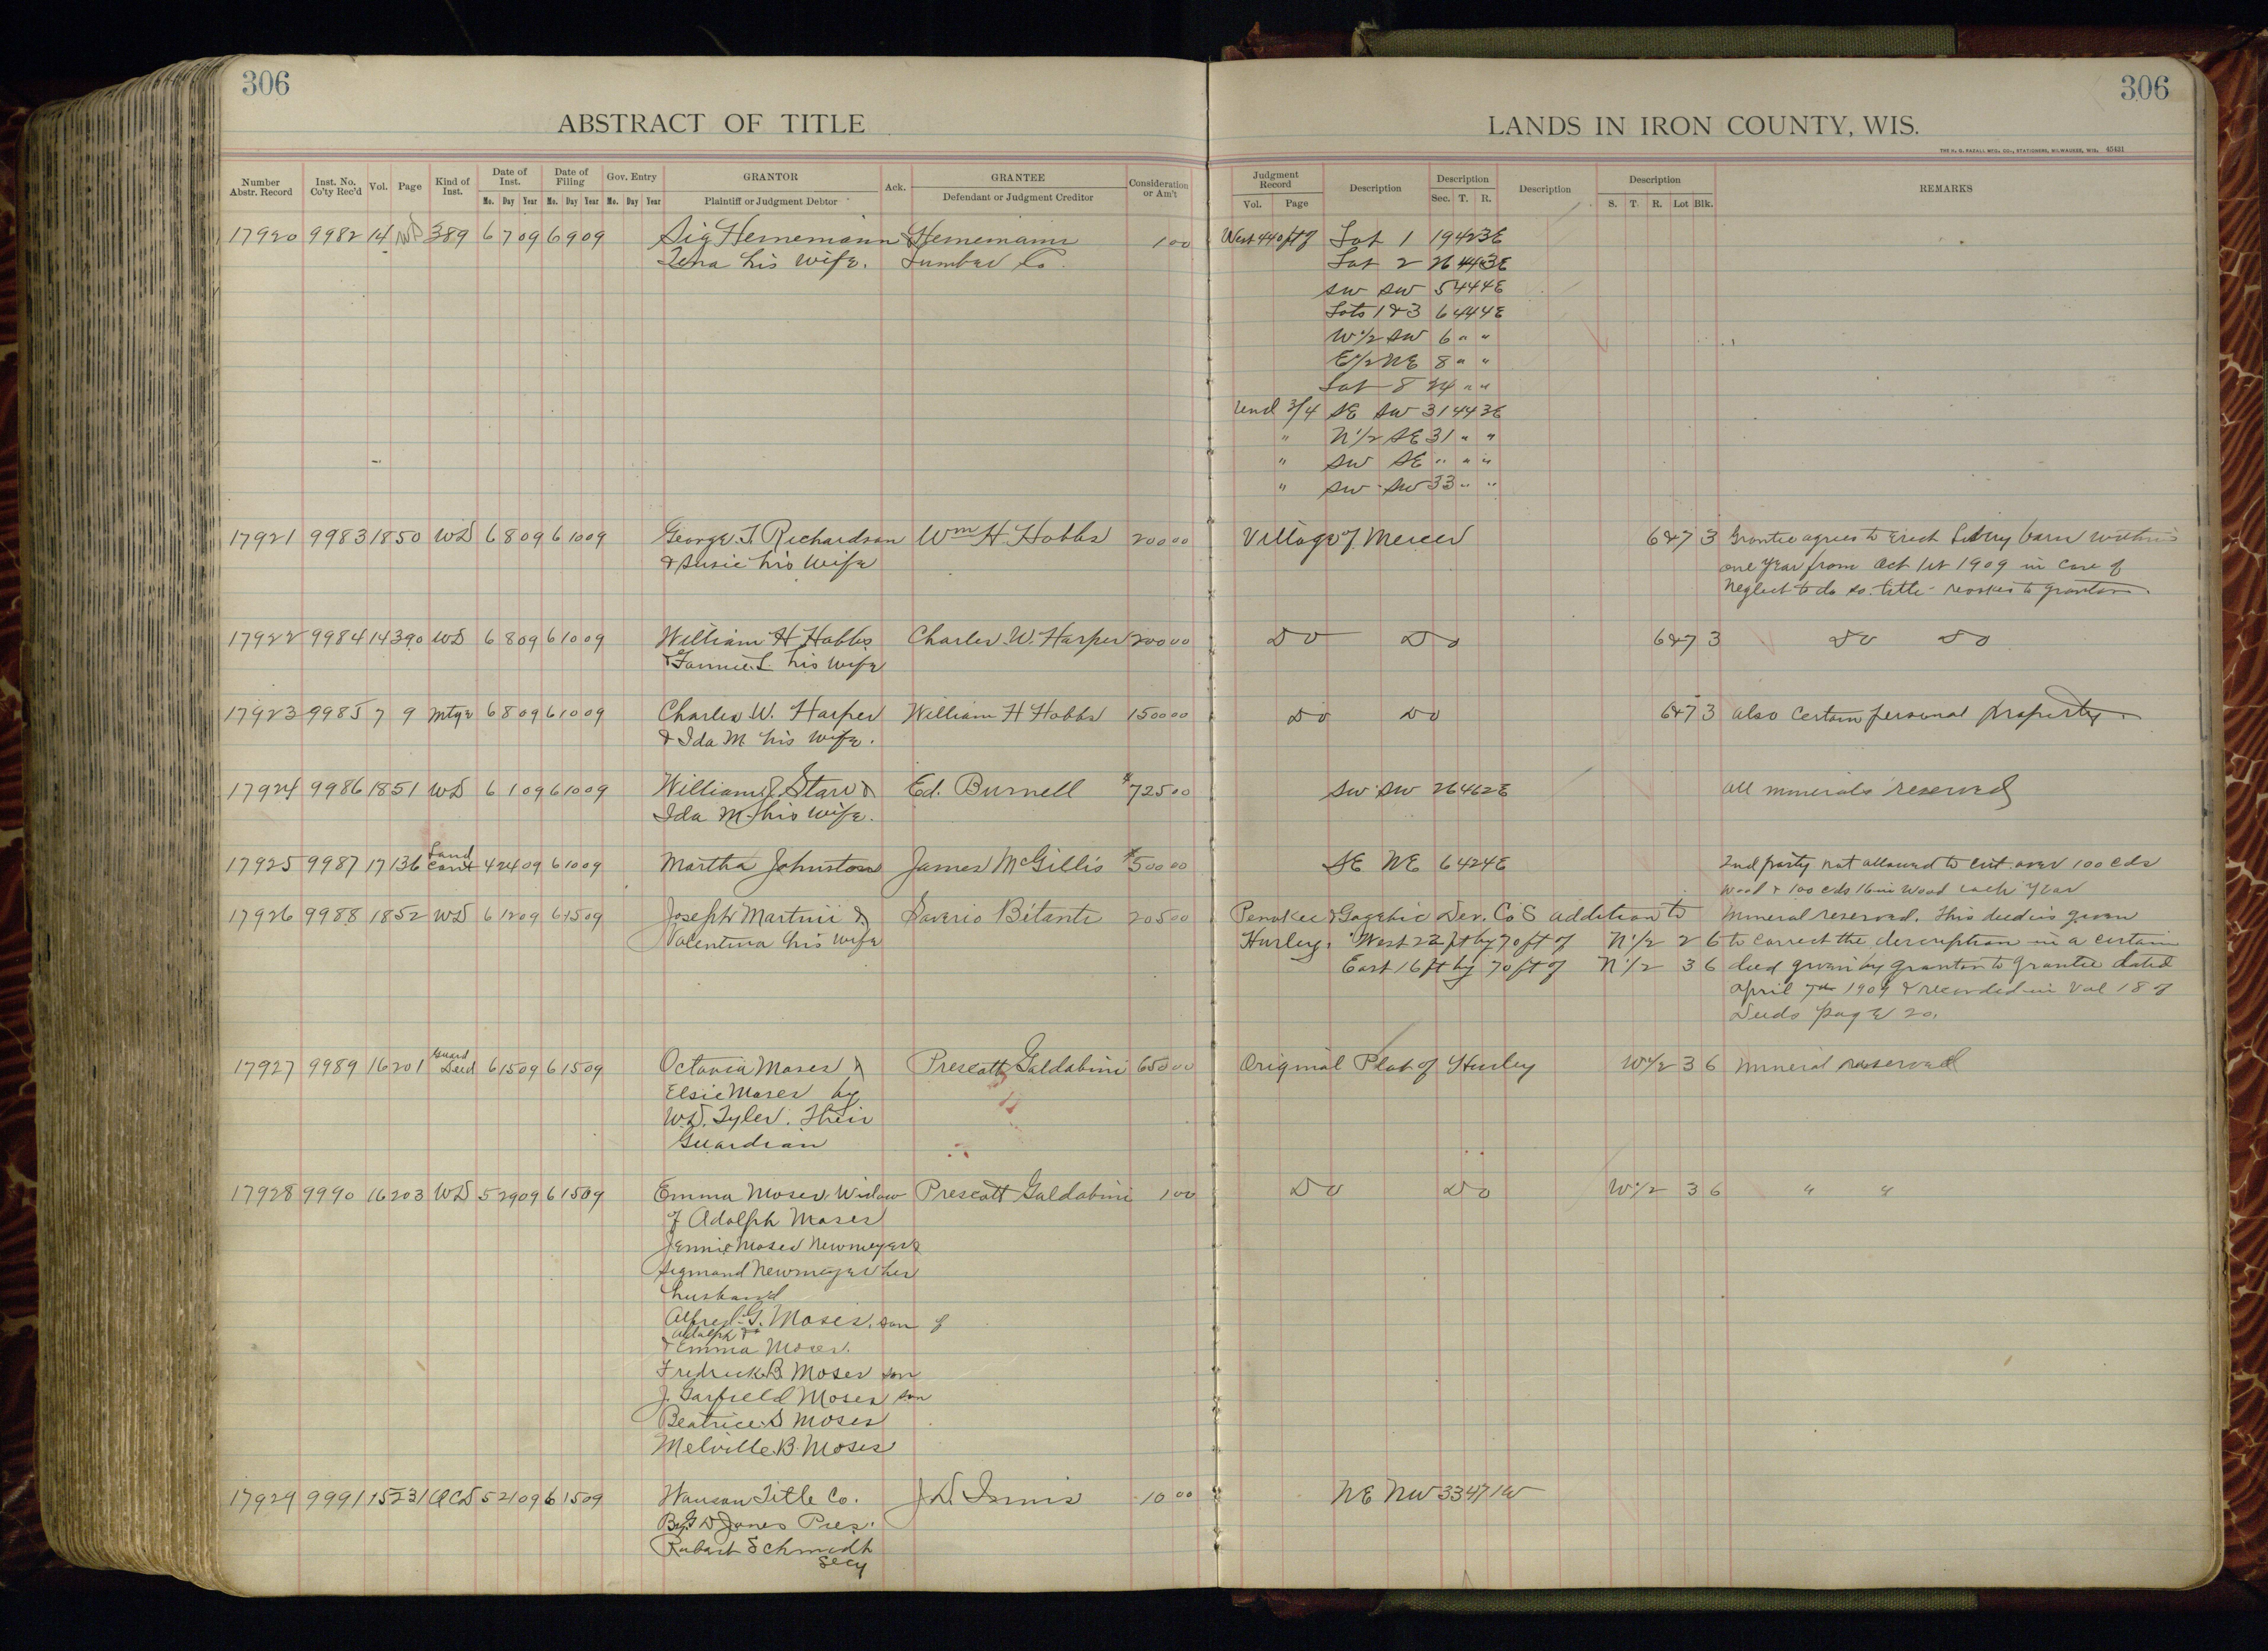 306
ABSTRACT OF TITLE
Number Abstr. Record
Inst. No. Co'ty Rec'd
Vol.
Page
Kind of Inst.
Date of Inst.
Mo. Day Year
Date of Filing
Mo. Day Year
Gov. Entry
Mo. Day Year
GRANTOR
Plaintiff or Judgment Debtor
Ack.
GRANTEE
Defendant or Judgment Creditor
Consideration or Am't
17920 9982 14 WD 389 6 7 09 6 9 09 Sig Heinemann Heinemann 1 00
Lena his wife. Lumber Co.
17921 9983 18 50 WD 6 8 09 6 10 09 George T Richardson Wm H. Hobbs 200 00
& Susie his wife
17922 9984 14 390 WD 6 8 09 6 10 09 William H Hobbs Charles W. Harper 200 00
& Fannie L his wife
17923 9985 7 9 Mtge 6 8 09 6 10 09 Charles W. Harper William H Hobbs 1500 00
& Ida M his wife.
17924 9986 18 51 WD 6 1 09 6 10 09 William J. Starr & Ed. Burnell $725 00
Ida M. his wife.
17925 9987 17 136 Land Cont 4 24 09 6 10 09 Martha Johnston James McGillis $500 00
17926 9988 18 52 WD 6 12 09 6 15 09 Joseph Martini & Saverio Bitanti 205 00
Valentina his wife
17927 9989 16 201 Guard Deed 6 15 09 6 15 09 Octavia Moses & Prescott Galdabini 650 00
Elsie Moses by
W.D. Tyler. Their
Guardian
17928 9990 16 203 WD 5 29 09 6 15 09 Emma Moses Widow Prescott Galdabini 1 00
of Adolph Moses
Jennie Moses Newmeyer &
Sigmand Newmeyer her
husband
Alfred G. Moses. son of
Adolph &
& Emma Moses.
Fredrick B Moses son
J. Garfield Moses son
Beatrice D Moses
Melville B. Moses
17929 9991 15 231 QCD 5 21 09 6 15 09 Wausau Title Co. J.D. Innis 10 00
By G D Jones Pres.
Robert Schmidt
Secy
306
LANDS IN IRON COUNTY, WIS.
THE H. G. RAZALL MFG. CO., STATIONERS, MILWAUKEE, WIS. 45431
Judgment Record
Vol. Page
Description
Description
Sec. T. R.
Description
Description
S. T. R. Lot Blk.
REMARKS
West 440 ft of Lot 1 19 42 3E
Lot 2 26 44 3E
SW SW 5 44 4E
Lots 1 & 3 6 44 4E
W 1/2 SW 6 " "
E 1/2 NE 8 " "
Lot 8 24 " "
und 3/4 SE SW 31 44 3E
" N 1/2 SE 31 " "
" SW SE " " "
" SW SW 33 " "
Village of Mercer 6&7 3 Grantee agrees to erect Livery barn within
one year from Oct 1st 1909 in case of
neglect to do so. title revokes to grantor
Do Do 6&7 3 Do Do
Do Do 6&7 3 also certain personal property
SW SW 26 46 2E all minerals reserved
SE NE 6 42 4E 2nd party not allowed to cut over 100 cds
wood & 100 cds 16 in wood each year
Penokee & Gogebic Dev. Co S addition to Mineral reserved. This deed is given
Hurley, West 22 ft by 70 ft of N 1/2 2 6 to correct the description in a certain
East 16 ft by 70 ft of N 1/2 3 6 deed given by grantor to grantee dated
April 7th 1909 & recorded in Vol 18 of
Deeds page 20.
Original Plat of Hurley W 1/2 3 6 Mineral reserved
Do Do W 1/2 3 6 " "
NE NW 33 47 1W